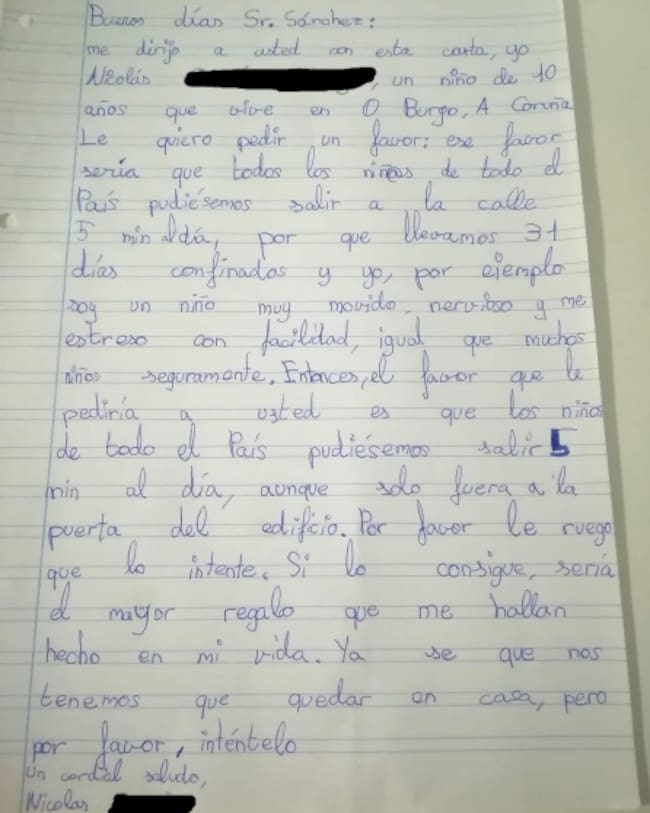 Buenos días Sr. Sánchez:
me dirijo a usted con esta carta, yo
Nicolás , un niño de 10
años que vive en O Burgo, A Coruña
Le quiero pedir un favor: ese favor
sería que todos los niños de todo el
País pudiésemos salir a la calle
5 min al día, por que llevamos 31
días confinados y yo, por ejemplo
soy un niño muy movido, nervioso y me
estreso con facilidad, igual que muchos
niños seguramente. Entonces, el favor que le
pediría a usted es que los niños
de todo el País pudiésemos salir 5
min al día, aunque solo fuera a la
puerta del edificio. Por favor le ruego
que lo intente. Si lo consigue, sería
el mayor regalo que me hallan
hecho en mi vida. Ya se que nos
tenemos que quedar en casa, pero
por favor, inténtelo
Un cordial saludo,
Nicolas